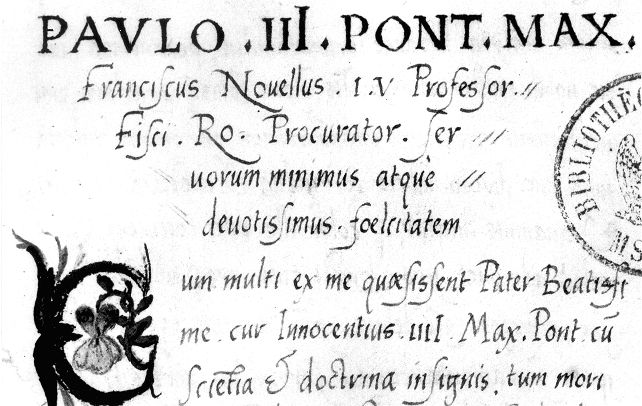 PAVLO .IIII. PONT. MAX.
Franciſcus Nouellus I.V Profeſſor.
Fiſci. Ro. Procurator. ſer
uorum minimus atque
deuotiſſimus. foelcitatem
Cum multi ex me quæſiſſent Pater Beatiſſi
me cur Innocentius .IIII Max. Pont cū
ſciẽtia & doctrina inſignis, tum mori
BIBLIOTHÈ
MSS